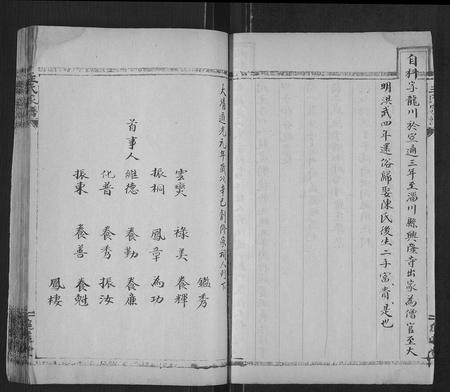 自科字龍川於宣通三年至淄川縣興廢寺出家為僧官至大
明洪武四年還俗歸娶陳氏後生二子富貴是也
大清道光元年歲次辛巳創修
首事人
鑑秀
雲燮 祿美 養輝
振桐 鳳章 為功
維德 養勤 養廉
化普 養秀 振汝
振東 養善 養魁
鳳棲